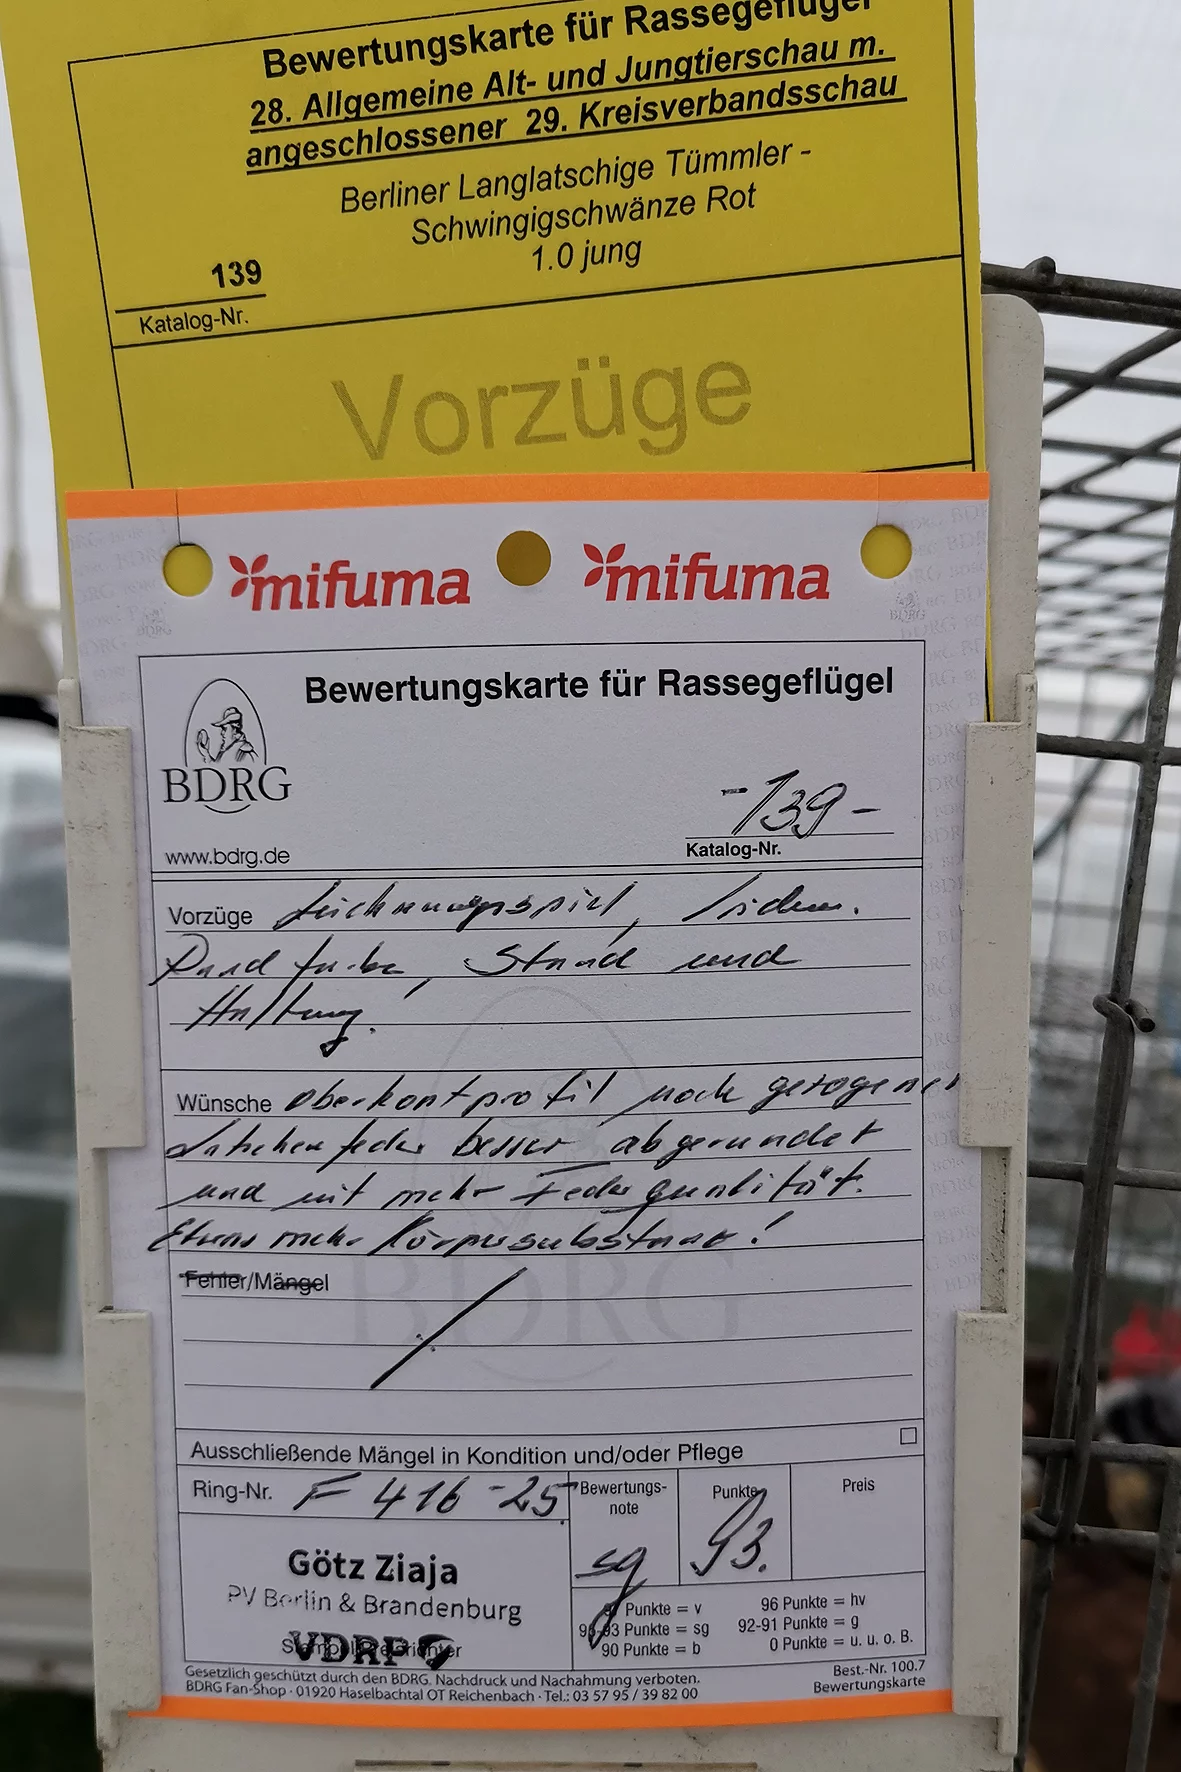 Bewertungskarte für Rassegeflügel
28. Allgemeine Alt- und Jungtierschau m.
angeschlossener 29. Kreisverbandsschau
Berliner Langlatschige Tümmler -
Schwingigschwänze Rot
1.0 jung
139
Katalog-Nr.
Vorzüge
mifuma mifuma
Bewertungskarte für Rassegeflügel
BDRG
-139-
www.bdrg.de
Katalog-Nr.
Vorzüge Zeichnungsspiel,
Stand und
Haltung!
Wünsche Oberkopfprofil noch gezogener
Latschenfeder besser abgerundet
und mit mehr Federqualität.
Etwas mehr Körpersubstanz!
Fehler/Mängel
Ausschließende Mängel in Kondition und/oder Pflege
Ring-Nr. F 416 -25
Bewertungs-
note
sg
Punkte
93.
Preis
Götz Ziaja
PV Berlin & Brandenburg
VDRP
Punkte = v 96 Punkte = hv
Punkte = sg 92-91 Punkte = g
90 Punkte = b 0 Punkte = u. u. o. B.
Gesetzlich geschützt durch den BDRG. Nachdruck und Nachahmung verboten.
BDRG Fan-Shop · 01920 Haselbachtal OT Reichenbach · Tel.: 03 57 95 / 39 82 00
Best.-Nr. 100.7
Bewertungskarte